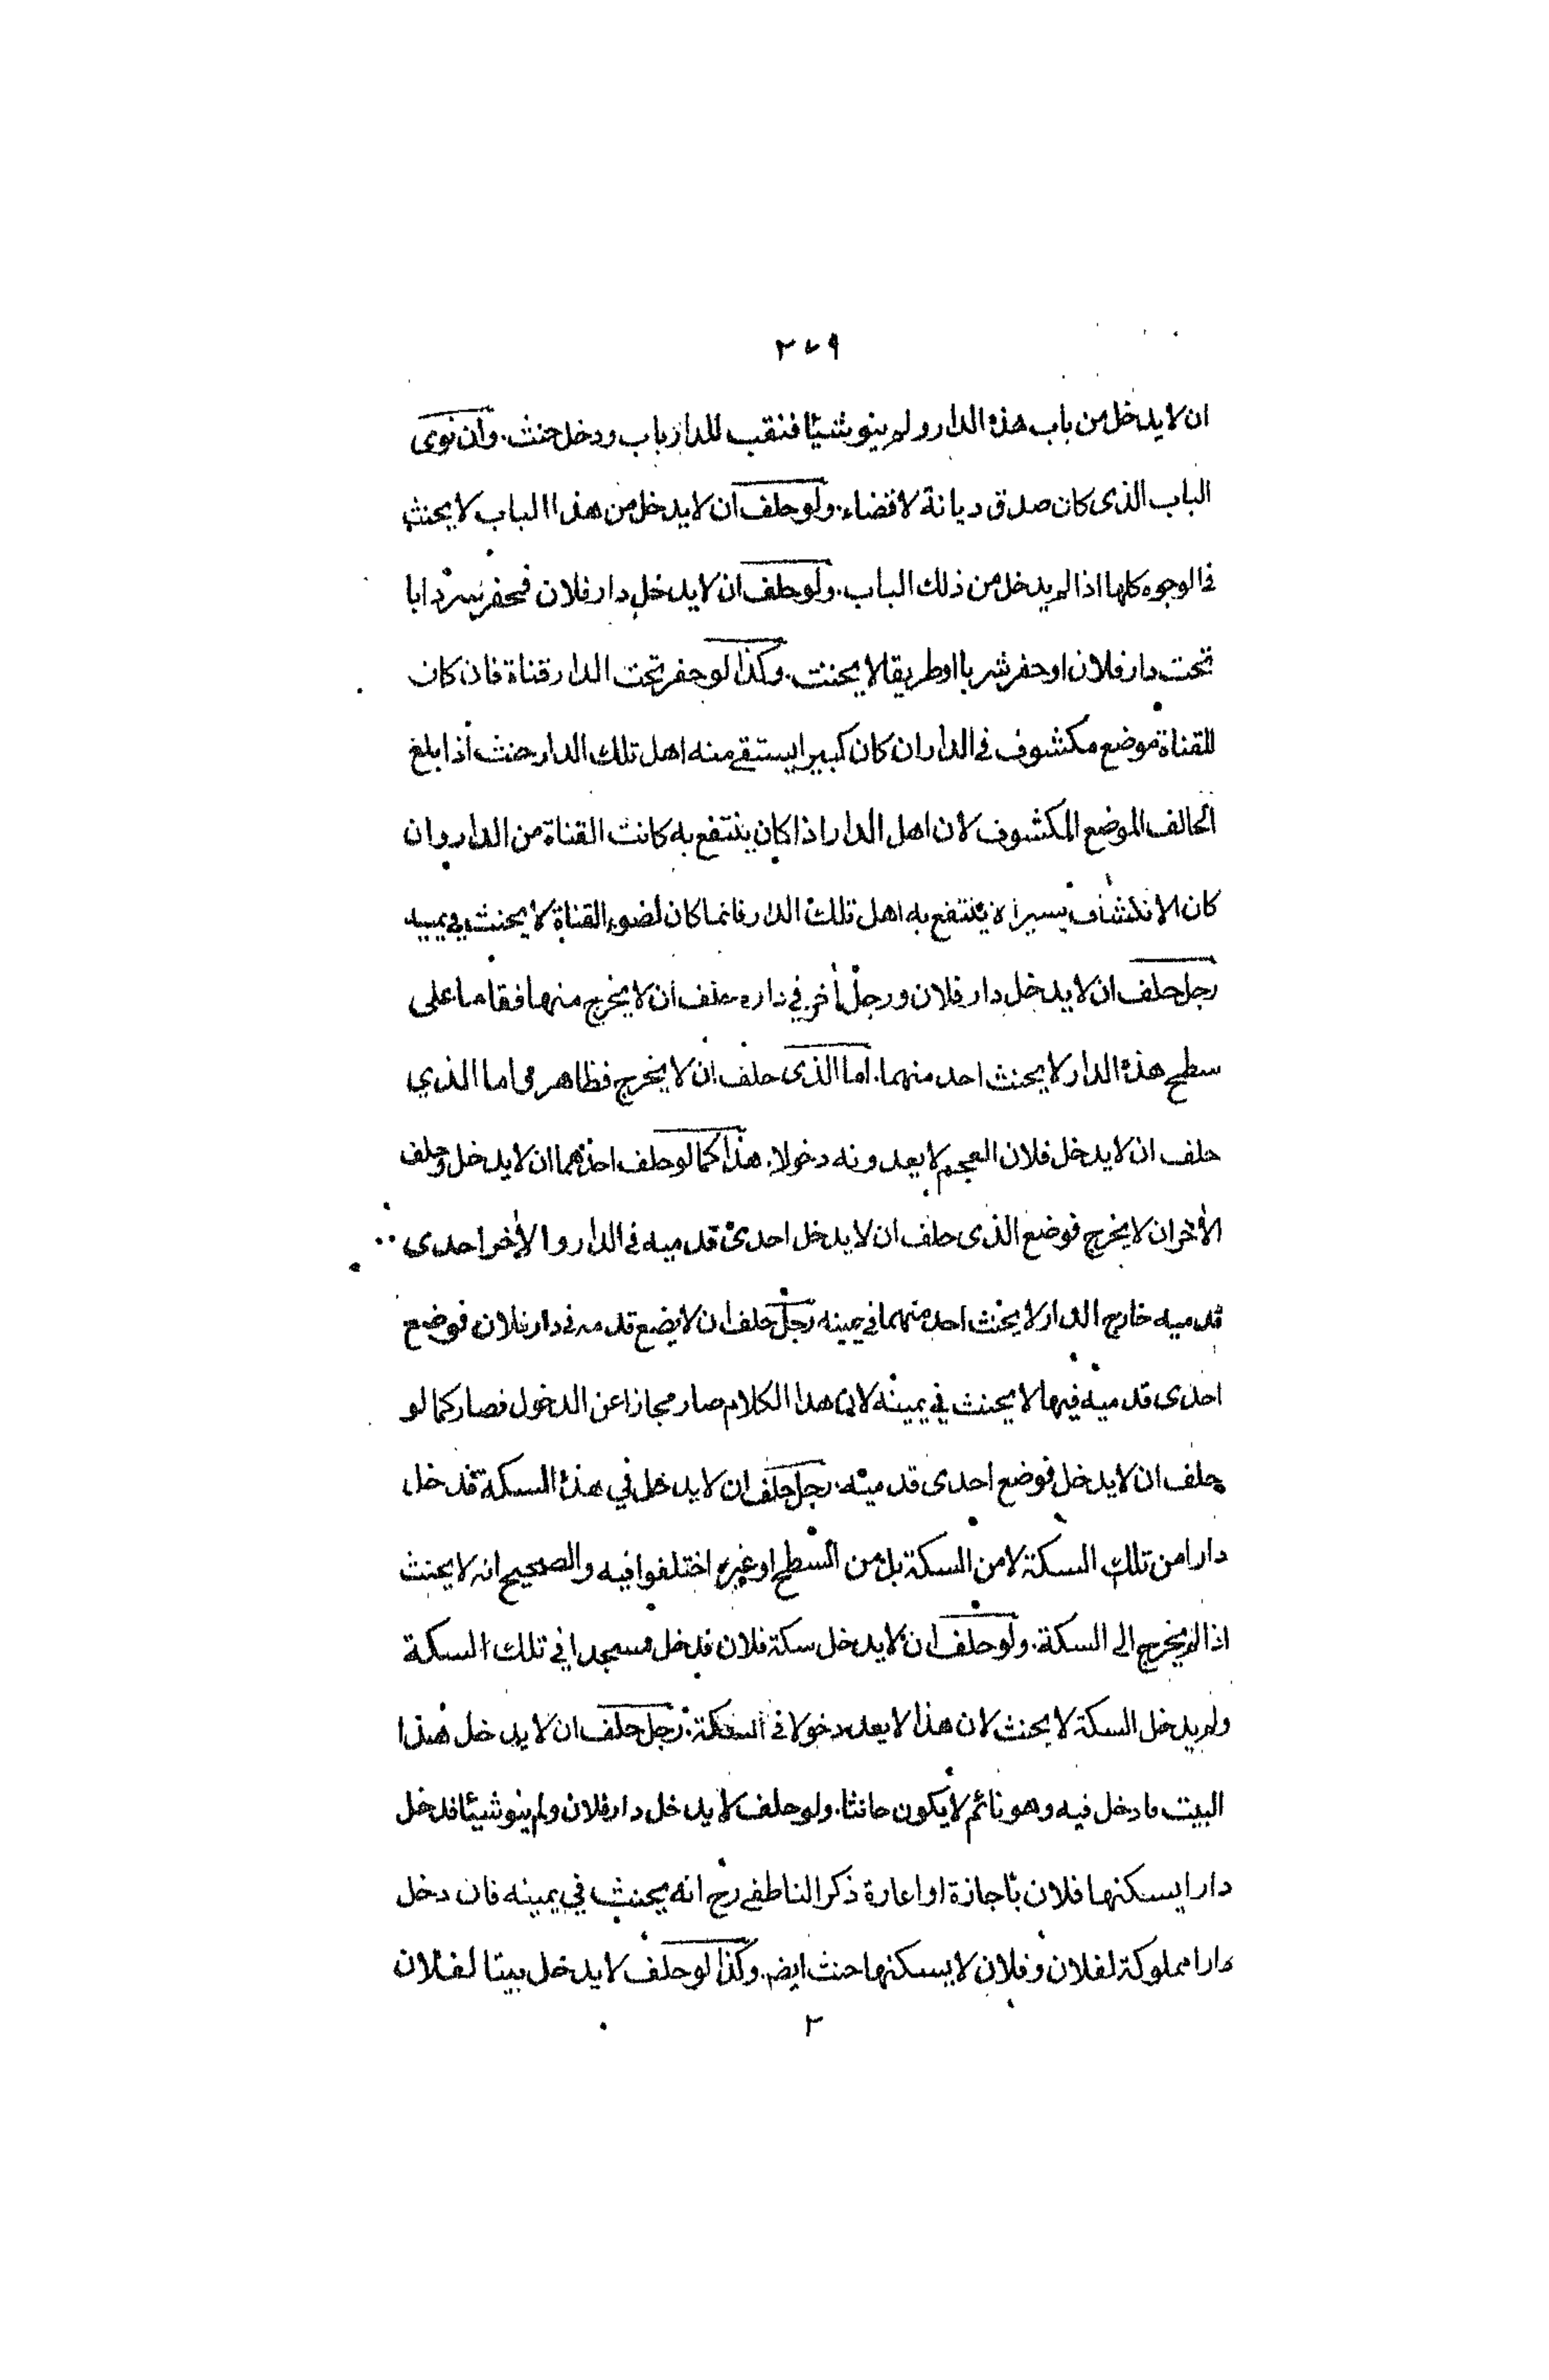 ٢٧٩
ان لا يدخل من باب هذه الدار ولم ينو شيئا فنقب للدار باب ودخل حنث. وان نوى
الباب الذى كان صدق ديانة لا قضاء. ولو حلف ان لا يدخل من هذا الباب لا يحنث
فى الوجوه كلها اذا لم يدخل من ذلك الباب. ولو حلف ان لا يدخل دار فلان فحفر سردابا
تحت دار فلان او حفر شربا او طريقا لا يحنث. وكذا لو حفر تحت الدار قناة فان كان
للقناة موضع مكشوف فى الدار ان كان كبيرا يستقى منه اهل تلك الدار حنث اذا بلغ
الحالف الموضع المكشوف لان اهل الدار اذا كان ينتفع به كانت القناة من الدار وان
كان الانكشاف يسيرا لا ينتفع به اهل تلك الدار فانما كان لضوء القناة لا يحنث في يمينه
رجل حلف ان لا يدخل دار فلان ورجل أخر في داره حلف ان لا يخرج منها فقاما على
سطح هذه الدار لا يحنث احد منهما. اما الذى حلف ان لا يخرج فظاهر واما الذي
حلف ان لا يدخل فلان العجم لا يعدونه دخولا. هذا كما لو حلف احدهما ان لا يدخل وحلف
الأخر ان لا يخرج فوضع الذى حلف ان لا يدخل احدى قدميه فى الدار والأخر احدى
قدميه خارج الدار لا يحنث احد منهما في يمينه رجل حلف ان لا يضع قدمه فى دار فلان فوضع
احدى قدميه فيها لا يحنث في يمينه لان هذا الكلام صار مجازا عن الدخول فصار كما لو
حلف ان لا يدخل فوضع احدى قدميه. رجل حلف ان لا يدخل في هذه السكة فدخل
دارا من تلك السكة لا من السكة بل من السطح او غيره اختلفوا فيه والصحيح انه لا يحنث
اذا لم يخرج الى السكة. ولو حلف ان لا يدخل سكة فلان فدخل مسجدا في تلك السكة
ولم يدخل السكة لا يحنث لان هذا لا يعد دخولا فى السكة. رجل حلف ان لا يدخل هذا
البيت فادخل فيه وهو نائم لا يكون حانثا. ولو حلف لا يدخل دار فلان ولم ينو شيئا فدخل
دارا يسكنها فلان باجازة او اعارة ذكر الناطفى رح انه يحنث في يمينه فان دخل
دارا مملوكة لفلان وفلان لا يسكنها حنث ايضر. وكذا لو حلف لا يدخل بيتا لفلان
٢